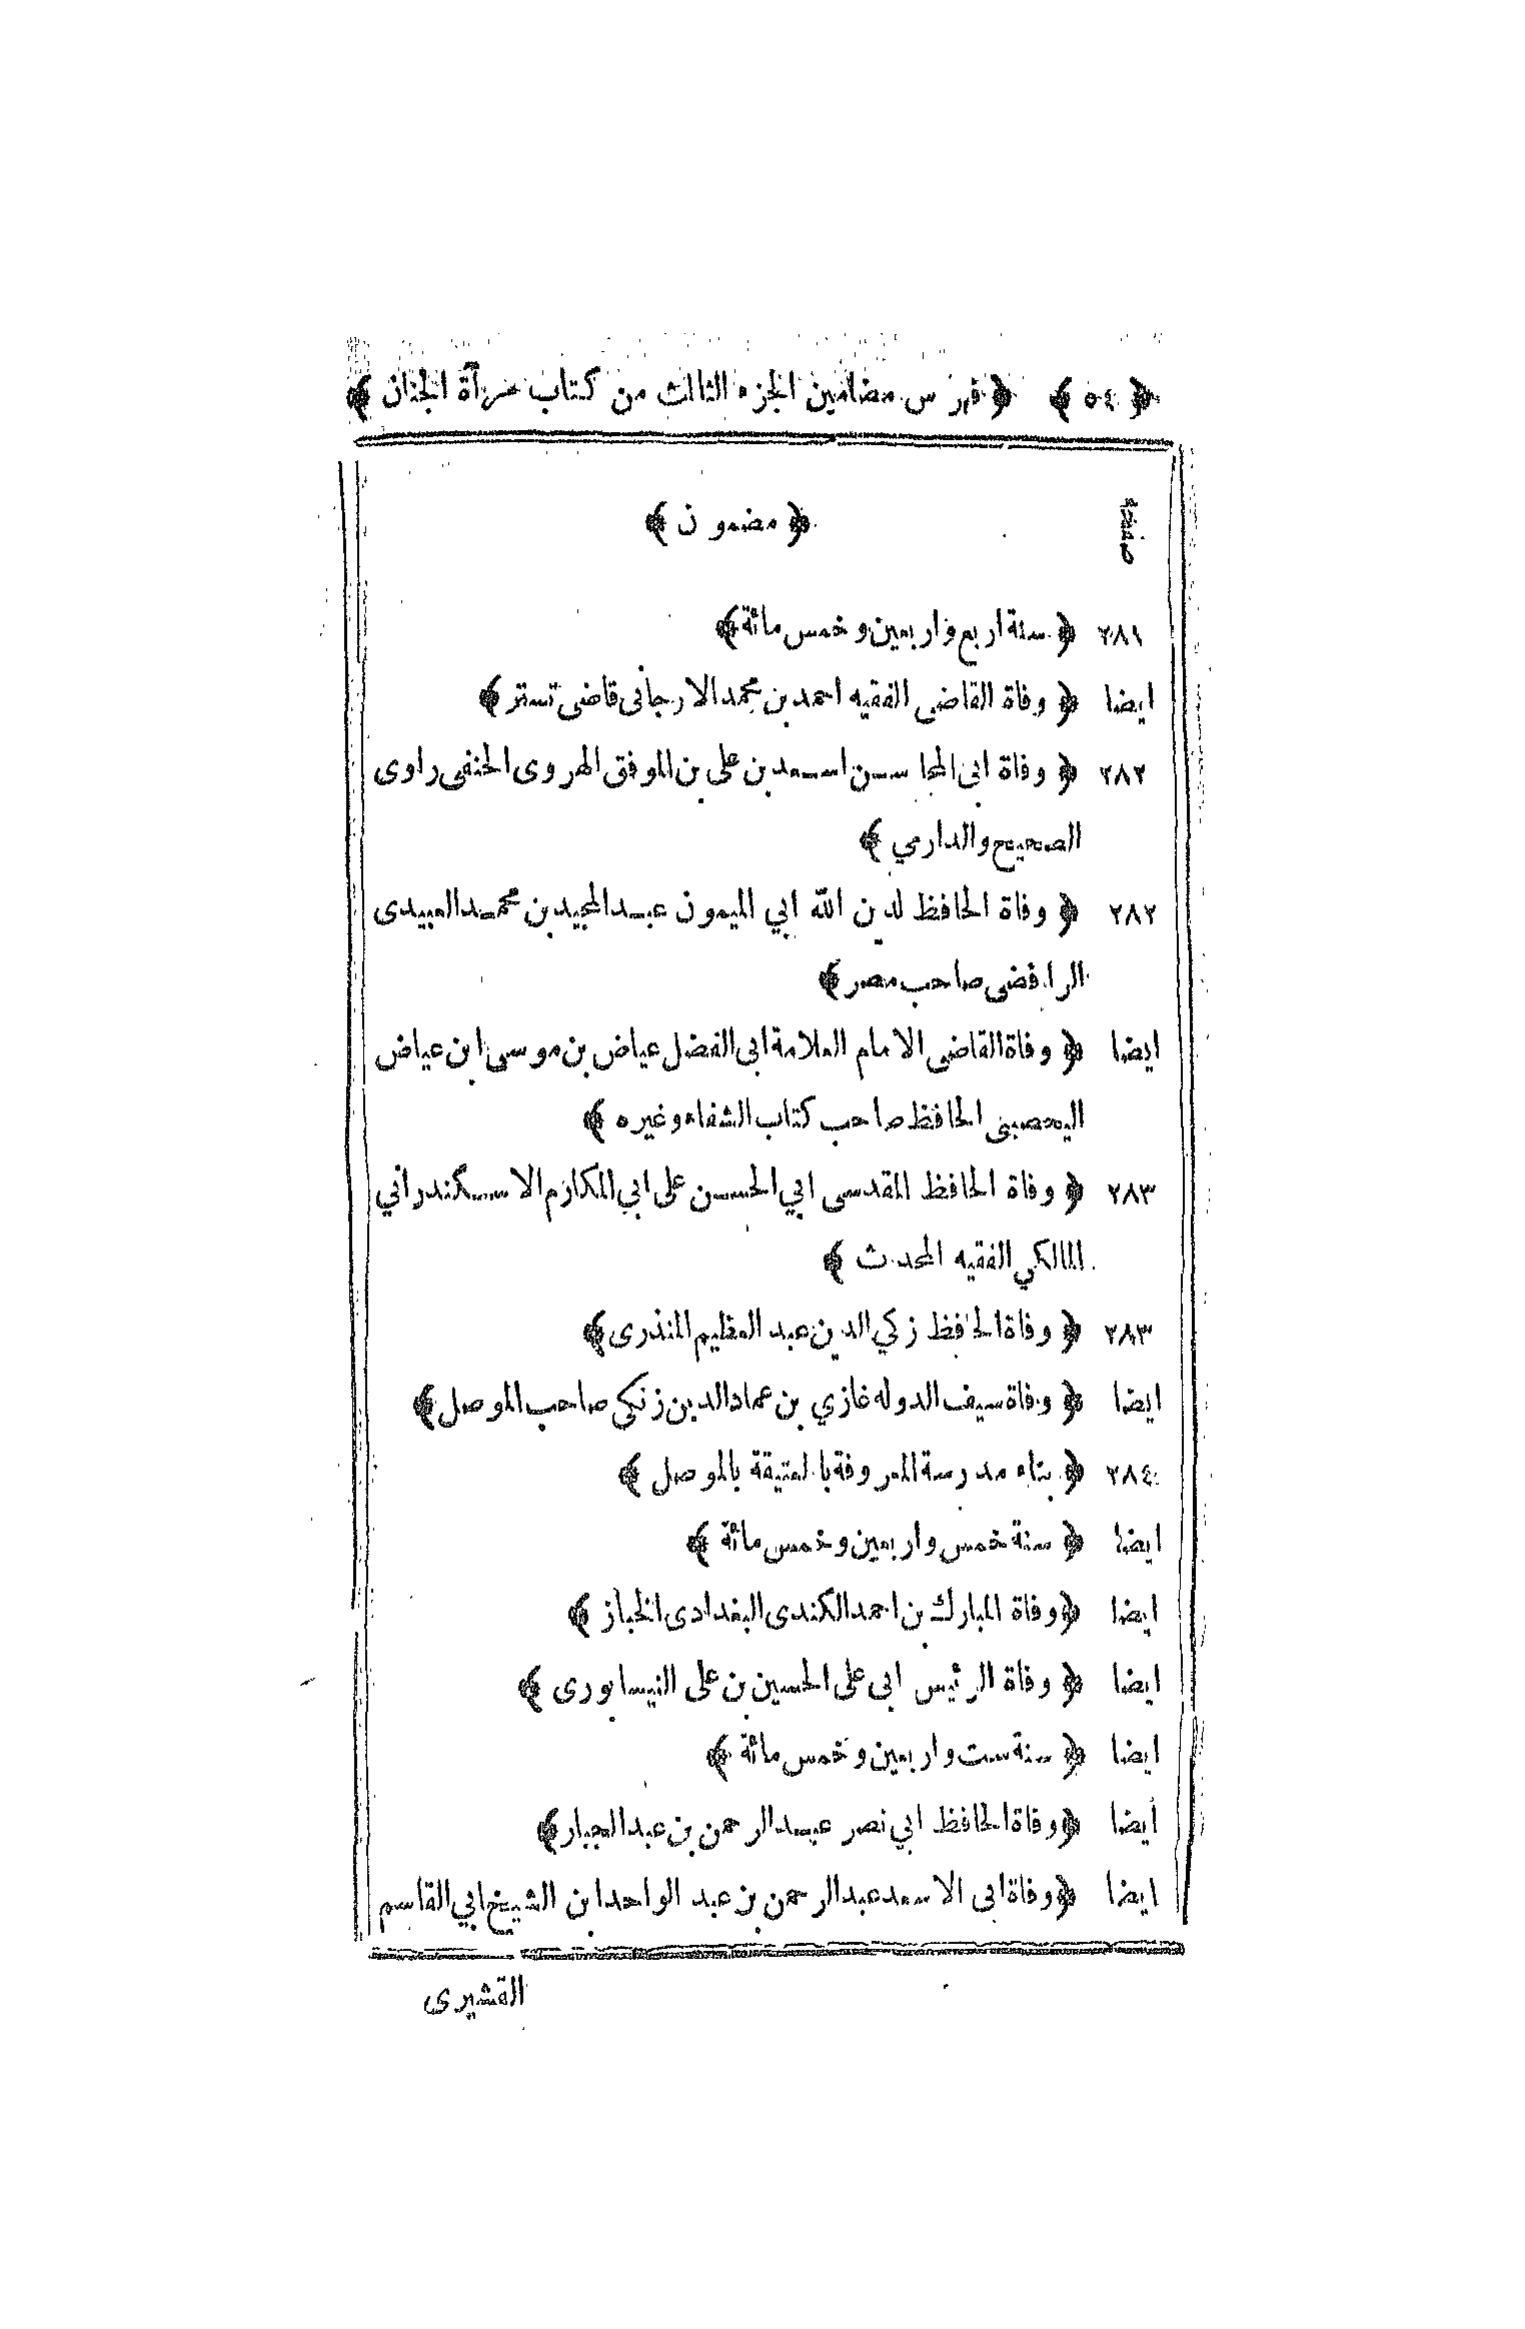 ﴿ ٥٤ ﴾ ﴿ فهرس مضامين الجزء الثالث من كتاب مرآة الجنان ﴾
صفحة ﴿ مضمون ﴾
٢٨١ ﴿ سنة اربع واربعين وخمس مائة ﴾
ايضا ﴿ وفاة القاضى الفقيه احمد بن محمد الارجانى قاضى تستر ﴾
٢٨٢ ﴿ وفاة ابى المحاسن اسعد بن على بن الموفق الهروى الحنفى راوى
الصحيح والدارمي ﴾
٢٨٢ ﴿ وفاة الحافظ لدين الله ابي الميمون عبد المجيد بن محمد العبيدى
الرافضى صاحب مصر ﴾
ايضا ﴿ وفاة القاضى الامام العلامة ابى الفضل عياض بن موسى ابن عياض
اليحصبى الحافظ صاحب كتاب الشفاء وغيره ﴾
٢٨٣ ﴿ وفاة الحافظ المقدسى ابي الحسن على ابي المكارم الاسكندراني
المالكي الفقيه المحدث ﴾
٢٨٣ ﴿ وفاة الحافظ زكي الدين عبد العظيم المنذرى ﴾
ايضا ﴿ وفاة سيف الدوله غازي بن عماد الدين زنكى صاحب الموصل ﴾
٢٨٤ ﴿ بناء مدرسة المعروفة بالعتيقة بالموصل ﴾
ايضا ﴿ سنة خمس واربعين وخمس مائة ﴾
ايضا ﴿ وفاة المبارك بن احمد الكندى البغدادى الخباز ﴾
ايضا ﴿ وفاة الرئيس ابى على الحسين بن على النيسابورى ﴾
ايضا ﴿ سنة ست واربعين وخمس مائة ﴾
أيضا ﴿ وفاة الحافظ ابي نصر عبد الرحمن بن عبد الجبار ﴾
ايضا ﴿ وفاة ابى الاسعد عبد الرحمن بن عبد الواحد ابن الشيخ ابي القاسم
القشيرى